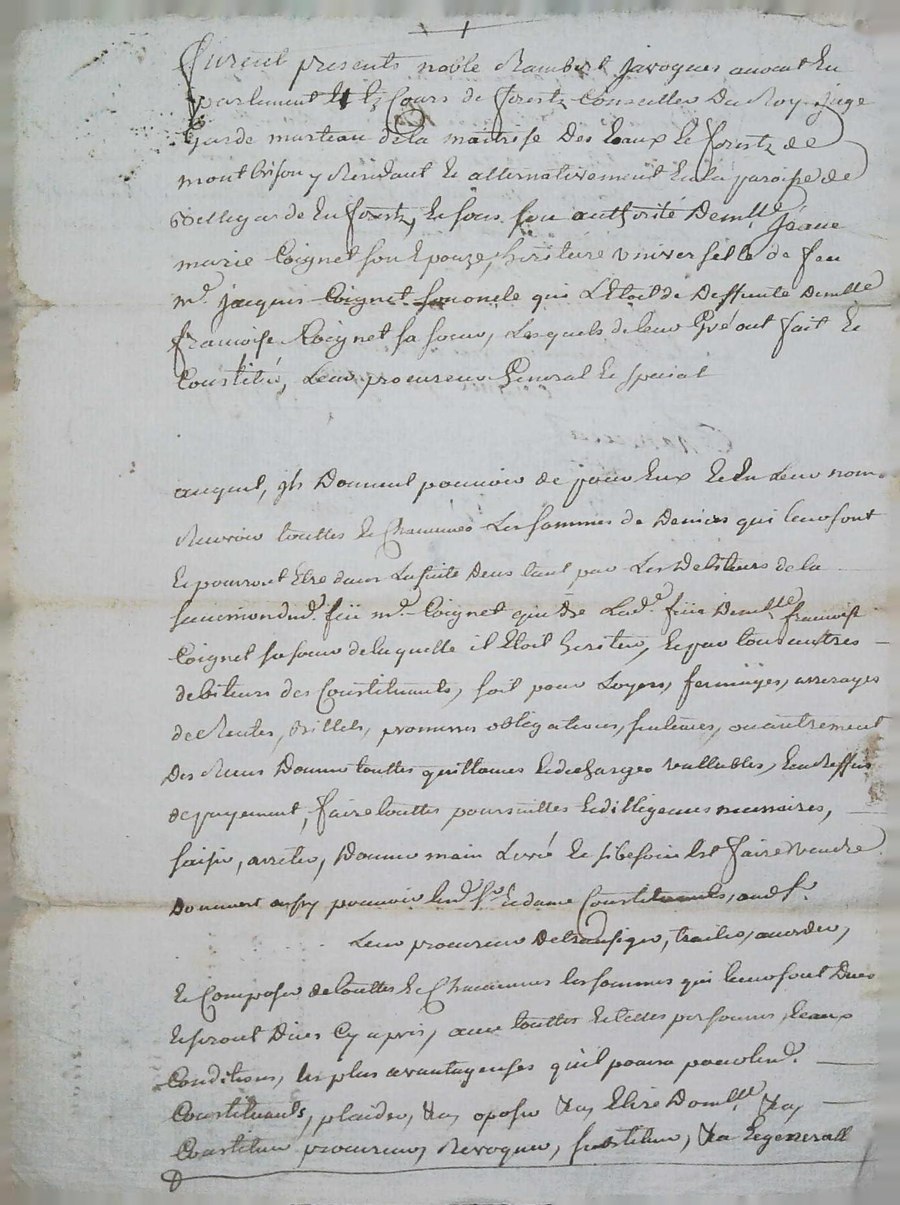 furent presents noble Rambert Javogues avocat En
parlement Et Es Cours de forestz Conseiller Du Roy Juge
Garde marteau dela maitrise Des Eaux Et forestz de
montbrison y Residant Et alternativement En la paroisse de
Bellegarde En forestz, Et sous son authorité Demlle Jeane
marie Coignet son Epouze, heritiere universselle de feu
Mr. Jacques Coignet son oncle qui L'Etoit de Deffunte Demlle
francoise Coignet sa soeur, Lesquels de leur Gré ont fait Et
Constitué, Leur procureur General Et special
auquel, ils Donnent pouvoir de pour Eux Et En Leur nom
Recevoir touttes Et Chacunes Les sommes de Deniers qui leur sont
Et pourront Etre dans La suite Deus tant par Les Debiteurs de la
feu Mr. Coignet que de Lad. feüe Demlle francoise
Coignet sa soeur de laquelle il Etoit heritier, Et par tous autres
debiteurs des Constituants, soit pour Loyers, fermages, arrerages
de Rentes, Billets, promesses obligations, sentences, ou autrement
Des Receus Donner touttes quittances Et decharges vallables, En cas Reffus
de payement, faire touttes poursuittes Et dilligences necessaires,
saisir, arreter, Donner main Levée Et si besoin Est faire vendre
Donnent aussy pouvoir lesd. Sr. Et dame Constituants, aud. Sr.
Leur procureur De transiger, traiter, accorder,
Et Composer de touttes Et Chacunnes les sommes qui leur sont Dues
Et seront Dues Cy apres, avec touttes Et telles personnes, Et aux
Conditions, les plus avantageuses qu'il pourra pour lesd.
Constituants, plaider, &a, oposer &a, Elire Domlle, &a,
Constituer procureurs, Revoquer, substituer, &a Et generall